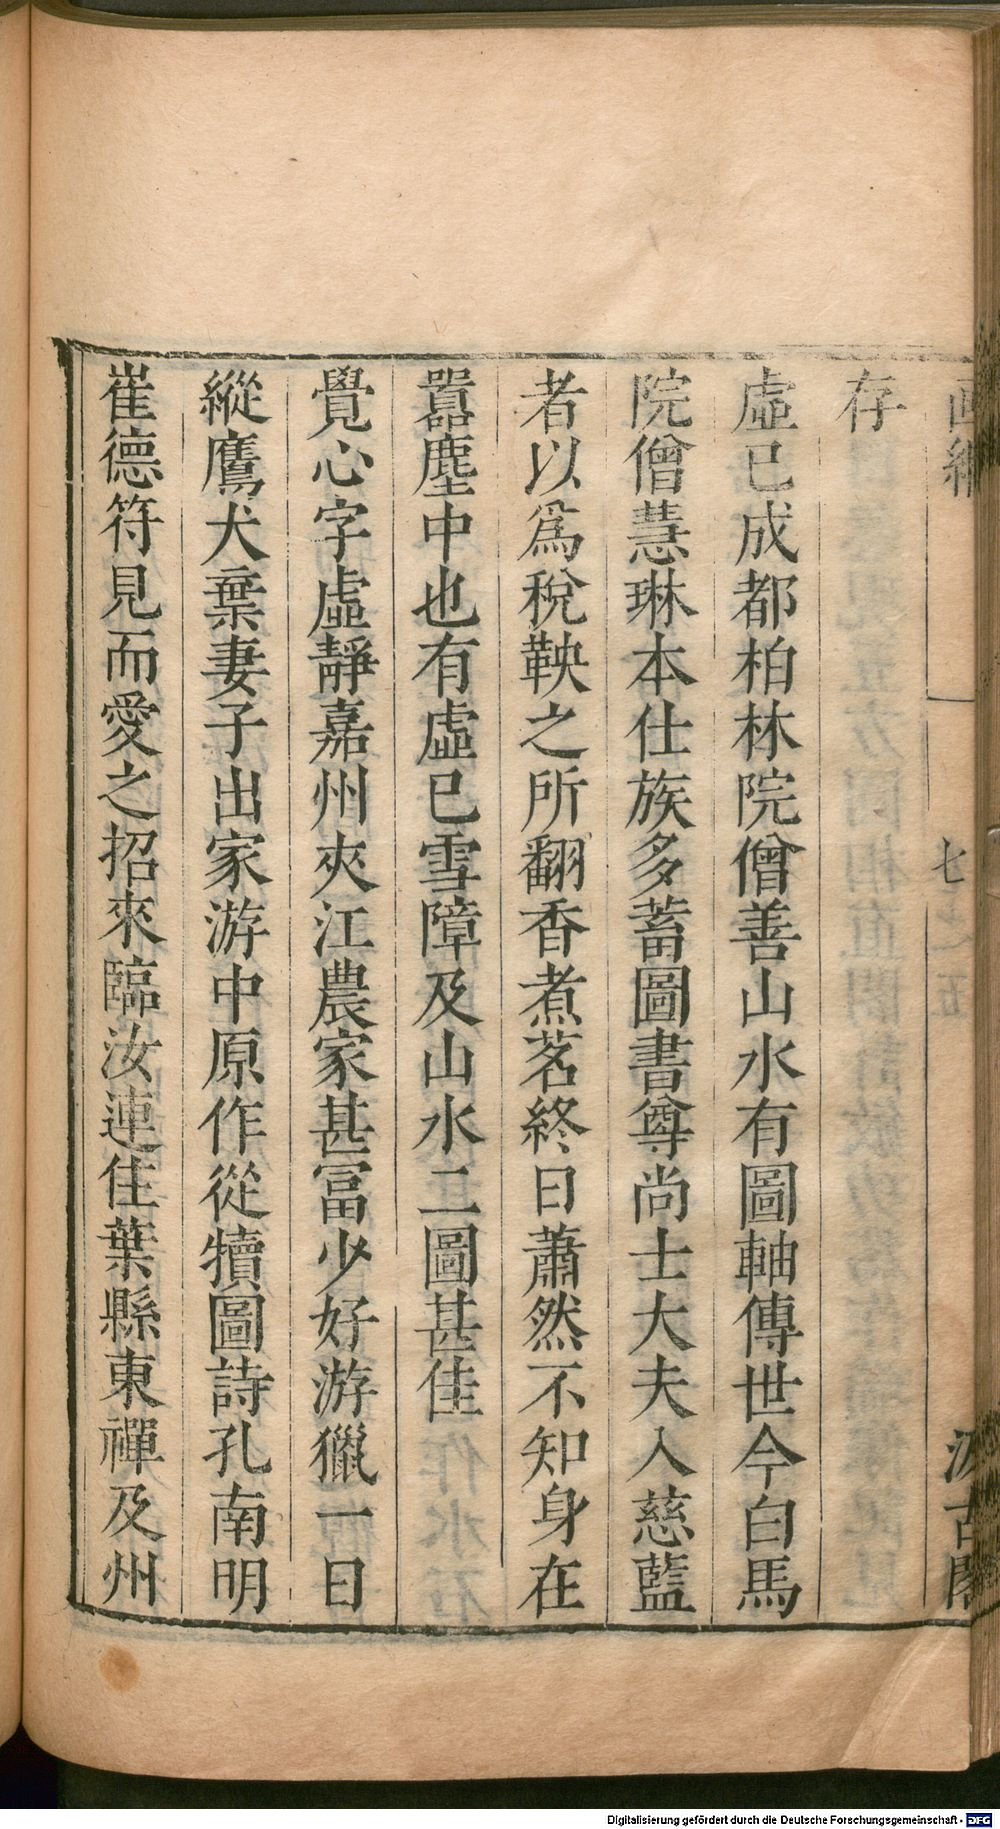 存
虛已成都柏林院僧善山水有圖軸傳世今白馬
院僧慧琳本仕族多蓄圖書尊尚士大夫入慈藍
者以爲稅鞅之所翻香煮茗終日蕭然不知身在
囂塵中也有虛已雪障及山水二圖甚佳
覺心字虛靜嘉州夾江農家甚富少好游獵一日
縱鷹犬棄妻子出家游中原作從犢圖詩孔南明
崔德符見而愛之招來臨汝連住葉縣東禪及州
Digitalisierung gefördert durch die Deutsche Forschungsgemeinschaft - DFG